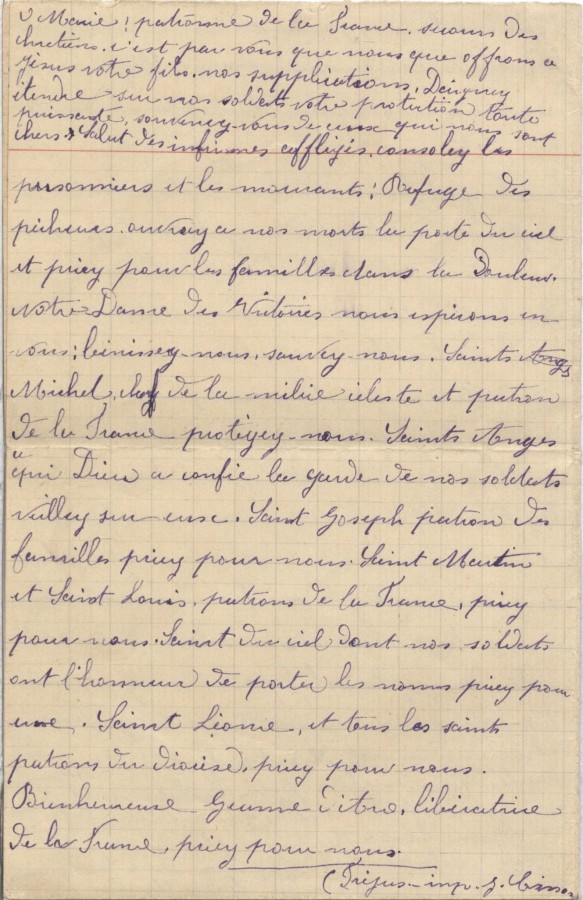 O Marie! patronne de la France. secours des
chretiens. c'est par vous que nous que offrons a
Jésus votre fils. nos supplications. Daignez
étendre sur nos soldats votre protection toute
puissante, souvenez-vous de ceux qui nous sont
chers. Salut des infirmes affligés. consolez les
prisonniers et les mourants; Refuge des
pécheurs. ouvrez a nos morts la porte du ciel
et priez pour les familles dans la Douleur.
Notre-Dame des Victoires nous espérons en
vous; bénissez-nous. sauvez-nous. Saints Anges
Michel, chef de la milice céleste et patron
de la France protégez-nous. Saints Anges
a qui Dieu a confié la garde de nos soldats
veillez sur eux. Saint Joseph patron des
familles priez pour nous. Saint Martin
et Saint Louis. patrons de la France. priez
pour nous. Saint du ciel dont nos soldats
ont l'honneur de porter les noms priez pour
eux. Saint Léonce, et tous les saints
patrons du diocèse, priez pour nous.
Bienheureuse Jeanne d'Arc, libératrice
de la France, priez pour nous.
(Fréjus-imp. J.